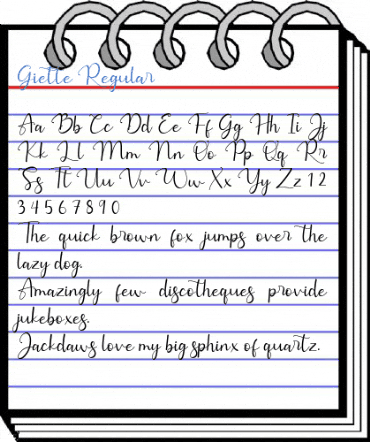 Gietle Regular
Aa Bb Cc Dd Ee Ff Gg Hh Ii Jj
Kk Ll Mm Nn Oo Pp Qq Rr
Ss Tt Uu Vv Ww Xx Yy Zz 1 2
3 4 5 6 7 8 9 0
The quick brown fox jumps over the
lazy dog.
Amazingly few discotheques provide
jukeboxes.
Jackdaws love my big sphinx of quartz.